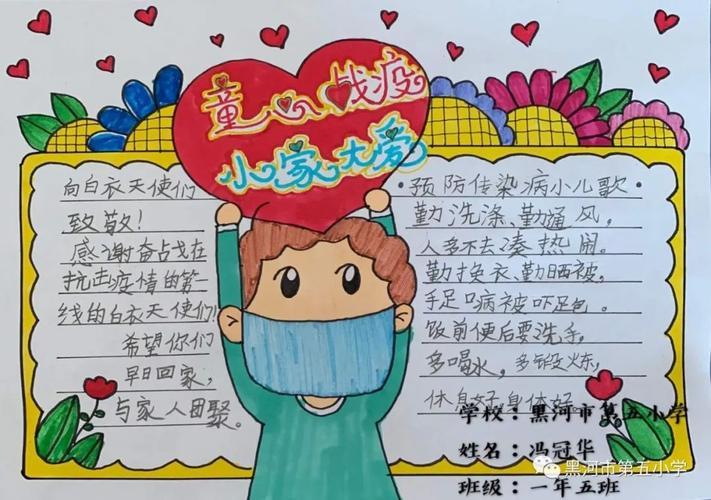 童心战疫
小家大爱
向白衣天使们
致敬！
感谢奋占戈在
抗击疫情的第一
线的白衣天使们！
希望你们
早日回家，
与家人团聚。
·预防传染病小儿歌·
勤洗涤、勤通风，
人多不去凑热闹。
勤换衣、勤晒被，
手足口病被吓跑。
饭前便后要洗手，
多喝水，多锻炼，
休息好，身体好。
学校：黑河市第五小学
姓名：冯冠华
班级：一年五班
黑河市第五小学